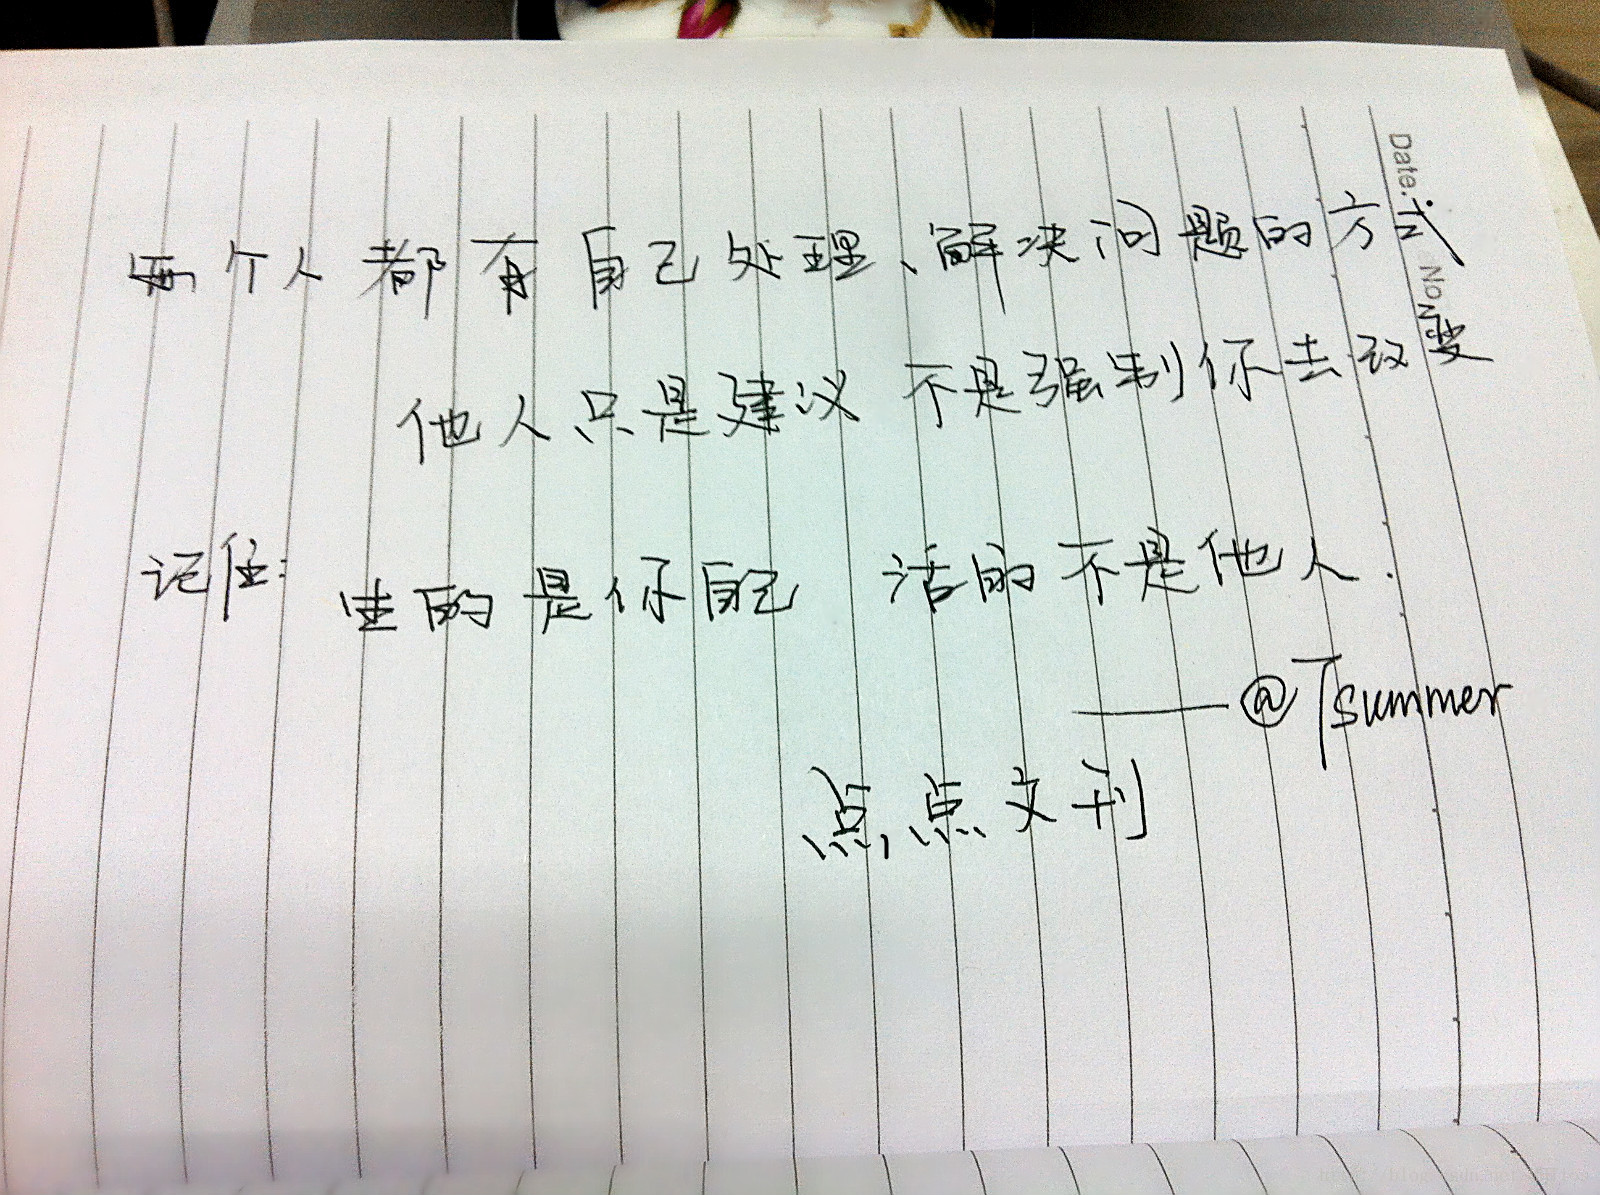 两个人都有自己处理、解决问题的方式
他人只是建议 不是强制你去改变
记住: 生的是你自己 活的不是他人.
——@Tsummer
点点文刊
Date.
No.